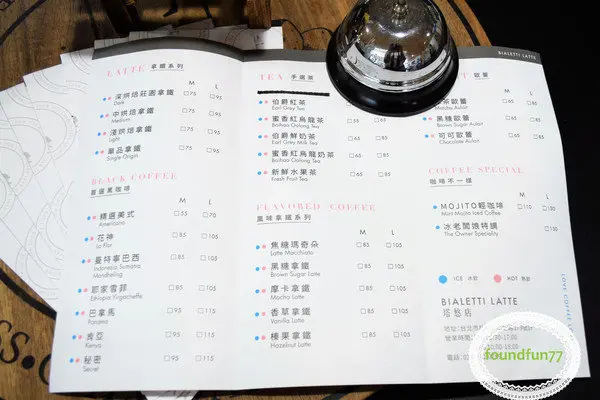 BIALETTI LATTE
LATTE 拿鐵系列
M L
深烘焙莊園拿鐵 □75 □95
Dark
中烘焙拿鐵 □75 □95
Medium
淺烘焙拿鐵 □75 □95
Light
單品拿鐵 □75 □95
Single Origin
BLACK COFFEE
首選黑咖啡
M L
精選美式 □55 □70
Americano
花神 □95 □115
La Flor
曼特寧巴西 □95 □115
Indonesia Sumatra
Mandheling
耶家雪菲 □95 □115
Ethiopia Yirgacheffe
巴拿馬 □95 □115
Panama
肯亞 □95 □115
Kenya
秘密 □95 □115
Secret
TEA 手選茶
伯爵紅茶
Earl Grey Tea
蜜香紅烏龍茶
Baihao Oolong Tea
伯爵鮮奶茶
Earl Grey Milk Tea
蜜香紅烏龍奶茶 □85 □105
Baihao Oolong Tea
新鮮水果茶 □85 □105
Fresh Fruit Tea
FLAVORED COFFEE
風味拿鐵系列
M L
焦糖瑪奇朵 □85 □105
Latte Macchiato
黑糖拿鐵 □85 □105
Brown Sugar Latte
摩卡拿鐵 □85 □105
Mocha Latte
香草拿鐵 □85 □105
Vanilla Latte
榛果拿鐵 □85 □105
Hazelnut Latte
歐蕾
M L
茶歐蕾 □65 □85
Matcha Aulait
黑糖歐蕾 □65 □85
Brown Sugar Aulait
可可歐蕾 □65 □85
Chocolate Aulait
COFFEE SPECIAL
咖啡不一樣
M L
MOJITO輕咖啡 □110 □130
Mint Mojito Iced Coffee
冰老闆娘特調 □100
The Owner Speciality
ICE 冰飲 HOT 熱飲
BIALETTI LATTE
塔愁店
地址:台北市
營業時間
電話
LOVE COFFEE
foundfun77